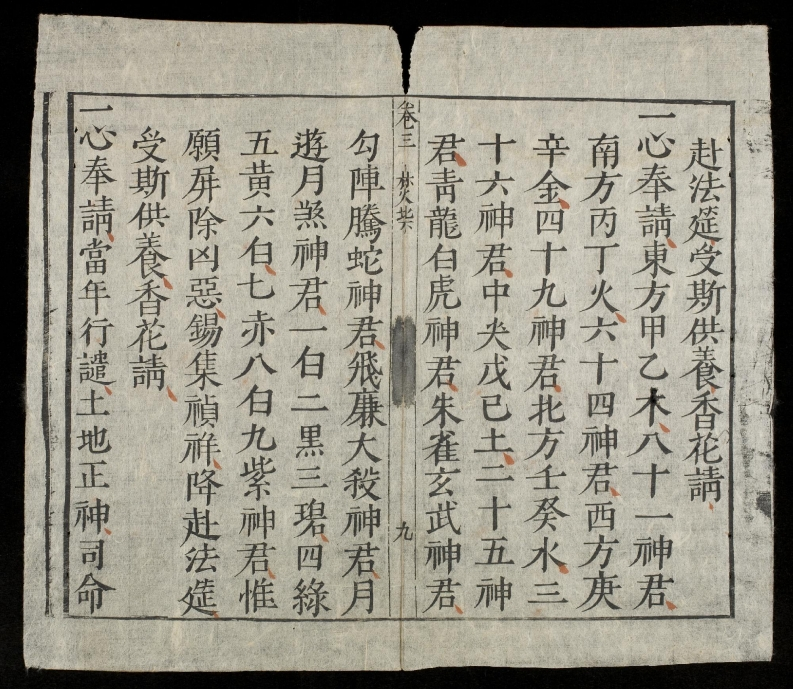 赴法筵受斯供養香花請
一心奉請東方甲乙木八十一神君
南方丙丁火六十四神君西方庚
辛金四十九神君北方壬癸水三
十六神君中央戊己土二十五神
君青龍白虎神君朱雀玄武神君
卷三
九
勾陣騰蛇神君飛廉大殺神君月
遊月煞神君一白二黒三碧四綠
五黃六白七赤八白九紫神君惟
願屏除凶惡錫集禎祥降赴法筵
受斯供養香花請
一心奉請當年行譴土地正神司命